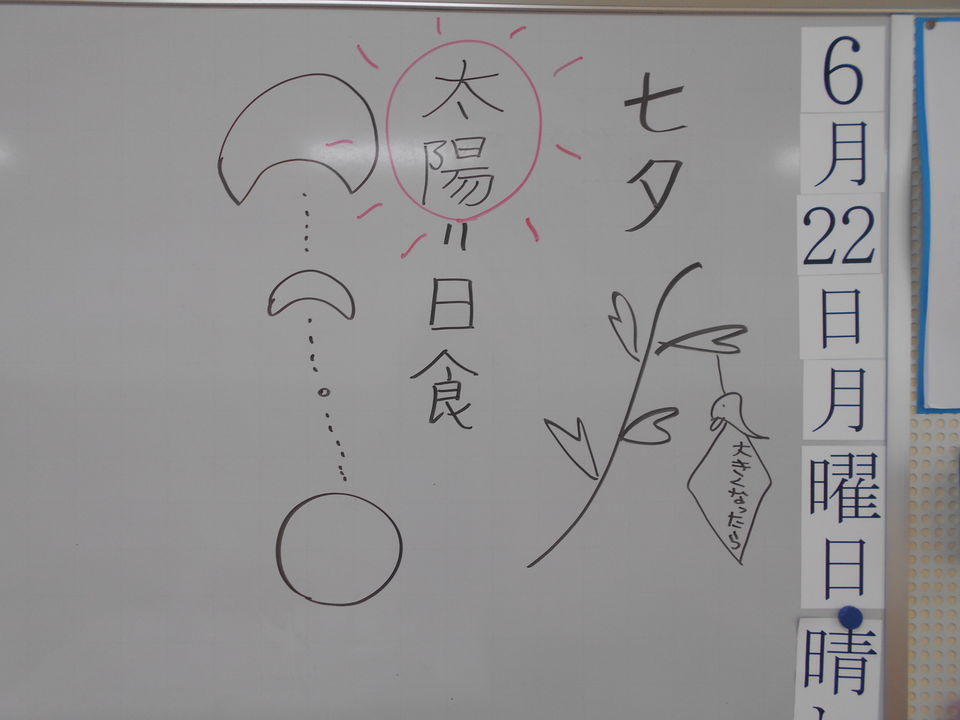 6月22日月曜日
晴
七夕
大きくなったら
太陽=日食